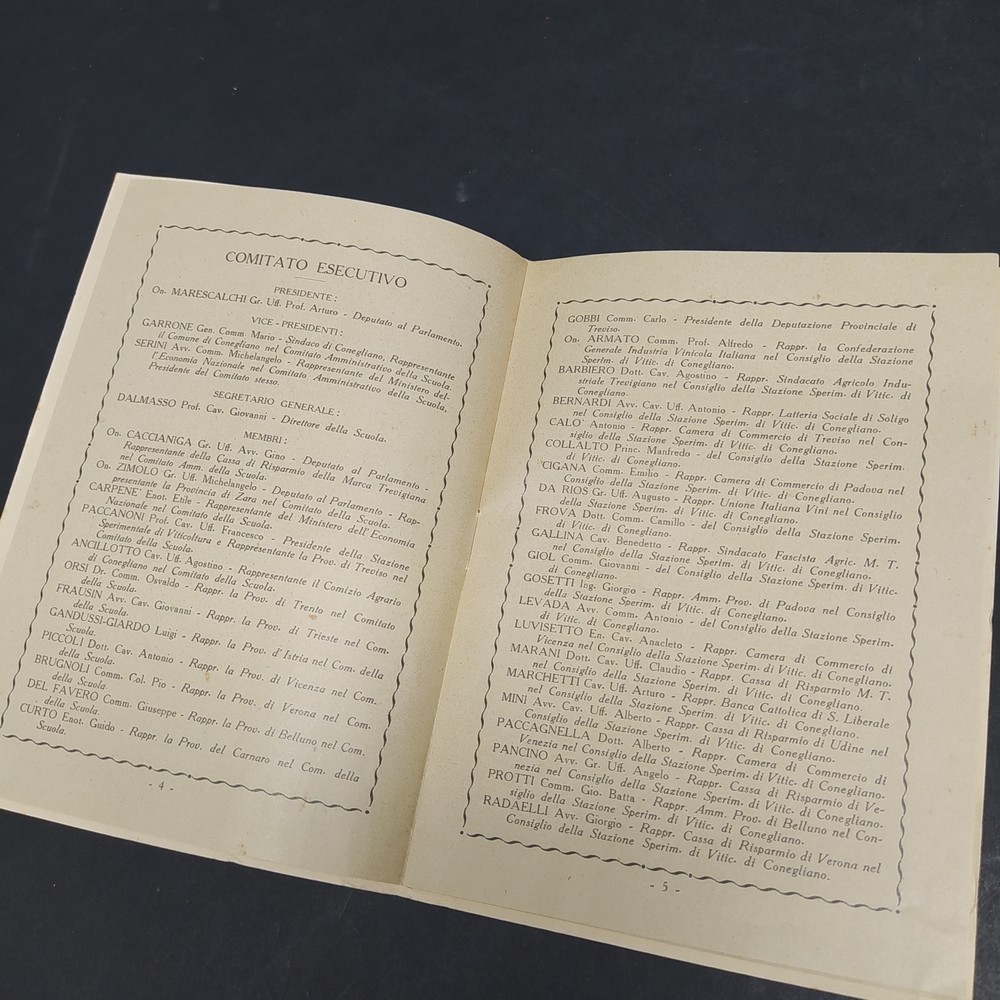 COMITATO ESECUTIVO
PRESIDENTE:
On. MARESCALCHI Gr. Uff. Prof. Arturo - Deputato al Parlamento.
VICE-PRESIDENTI:
GARRONE Gen. Comm. Mario - Sindaco di Conegliano, Rappresentante
il Comune di Conegliano nel Comitato Amministrativo della Scuola.
SERINI Avv. Comm. Michelangelo - Rappresentante del Ministero del-
l'Economia Nazionale nel Comitato Amministrativo della Scuola,
Presidente del Comitato stesso.
SEGRETARIO GENERALE:
DALMASSO Prof. Cav. Giovanni - Direttore della Scuola.
MEMBRI:
On. CACCIANIGA Gr. Uff. Avv. Gino - Deputato al Parlamento -
Rappresentante della Cassa di Risparmio della Marca Trevigiana
nel Comitato Amm. della Scuola.
On. ZIMOLO Gr. Uff. Michelangelo - Deputato al Parlamento - Rap-
presentante la Provincia di Zara nel Comitato della Scuola.
CARPENE' Enot. Etile - Rappresentante del Ministero dell'Economia
Nazionale nel Comitato della Scuola.
PACCANONI Prof. Cav. Uff. Francesco - Presidente della Stazione
Sperimentale di Viticoltura e Rappresentante la Prov. di Treviso nel
Comitato della Scuola.
ANCILLOTTO Cav. Uff. Agostino - Rappresentante il Comizio Agrario
di Conegliano nel Comitato della Scuola.
ORSI Dr. Comm. Osvaldo - Rappr. la Prov. di Trento nel Comitato
della Scuola.
FRAUSIN Avv. Cav. Giovanni - Rappr. la Prov. di Trieste nel Com.
della Scuola.
GANDUSSI-GIARDO Luigi - Rappr. la Prov. d'Istria nel Com. della
Scuola.
PICCOLI Dott. Cav. Antonio - Rappr. la Prov. di Vicenza nel Com.
della Scuola.
BRUGNOLI Comm. Col. Pio - Rappr. la Prov. di Verona nel Com.
della Scuola.
DEL FAVERO Comm. Giuseppe - Rappr. la Prov. di Belluno nel Com.
della Scuola.
CURTO Enot. Guido - Rappr. la Prov. del Carnaro nel Com. della
Scuola.
- 4 -
GOBBI Comm. Carlo - Presidente della Deputazione Provinciale di
Treviso.
On. ARMATO Comm. Prof. Alfredo - Rappr. la Confederazione
Generale Industria Vinicola Italiana nel Consiglio della Stazione
Sperim. di Vitic. di Conegliano.
BARBIERO Dott. Cav. Agostino - Rappr. Sindacato Agricolo Indu-
striale Trevigiano nel Consiglio della Stazione Sperim. di Vitic. di
Conegliano.
BERNARDI Avv. Cav. Uff. Antonio - Rappr. Latteria Sociale di Soligo
nel Consiglio della Stazione Sperim. di Vitic. di Conegliano.
CALO' Antonio - Rappr. Camera di Commercio di Treviso nel Con-
siglio della Stazione Sperim. di Vitic. di Conegliano.
COLLALTO Princ. Manfredo - del Consiglio della Stazione Sperim.
di Vitic. di Conegliano.
CIGANA Comm. Emilio - Rappr. Camera di Commercio di Padova nel
Consiglio della Stazione Sperim. di Vitic. di Conegliano.
DA RIOS Gr. Uff. Augusto - Rappr. Unione Italiana Vini nel Consiglio
della Stazione Sperim. di Vitic. di Conegliano.
FROVA Dott. Comm. Camillo - del Consiglio della Stazione Sperim.
di Vitic. di Conegliano.
GALLINA Cav. Benedetto - Rappr. Sindacato Fascista Agric. M. T.
nel Consiglio della Stazione Sperim. di Vitic. di Conegliano.
GIOL Comm. Giovanni - del Consiglio della Stazione Sperim. di Vitic.
di Conegliano.
GOSETTI Ing. Giorgio - Rappr. Amm. Prov. di Padova nel Consiglio
della Stazione Sperim. di Vitic. di Conegliano.
LEVADA Avv. Comm. Antonio - del Consiglio della Stazione Sperim.
di Vitic. di Conegliano.
LUVISETTO En. Cav. Anacleto - Rappr. Camera di Commercio di
Vicenza nel Consiglio della Stazione Sperim. di Vitic. di Conegliano.
MARANI Dott. Cav. Uff. Claudio - Rappr. Cassa di Risparmio M. T.
nel Consiglio della Stazione Sperim. di Vitic. di Conegliano.
MARCHETTI Cav. Uff. Arturo - Rappr. Banca Cattolica di S. Liberale
nel Consiglio della Stazione Sperim. di Vitic. di Conegliano.
MINI Avv. Cav. Uff. Alberto - Rappr. Cassa di Risparmio di Udine nel
Consiglio della Stazione Sperim. di Vitic. di Conegliano.
PACCAGNELLA Dott. Alberto - Rappr. Camera di Commercio di
Venezia nel Consiglio della Stazione Sperim. di Vitic. di Conegliano.
PANCINO Avv. Gr. Uff. Angelo - Rappr. Cassa di Risparmio di Ve-
nezia nel Consiglio della Stazione Sperim. di Vitic. di Conegliano.
PROTTI Comm. Gio. Batta - Rappr. Amm. Prov. di Belluno nel Con-
siglio della Stazione Sperim. di Vitic. di Conegliano.
RADAELLI Avv. Giorgio - Rappr. Cassa di Risparmio di Verona nel
Consiglio della Stazione Sperim. di Vitic. di Conegliano.
- 5 -